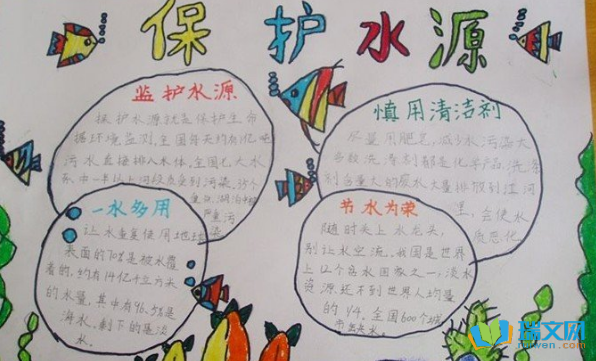 保护水源
监护水源
保护水源就是保护生命
据环境监测,全国每天约有1亿吨
污水直接排入水体。全国七大水
系中一半以上河段水质受到污染。35个
重点湖泊中
严重污
染
慎用清洁剂
尽量用肥皂,减少水污染大
多数洗涤剂都是化学产品,洗涤
剂含量大的废水大量排放到江河
里,会使水
质恶化
一水多用
让水重复使用地球
表面的70%是被水覆
着的,约有14亿千立方米
的水量,其中有96.5%是
海水。剩下的是淡
水。
节水为荣
随时关上水龙头,
别让水空流。我国是世界
上12个贫水国家之一,淡水
资源还不到世界人均量
的1/4。全国600个城
市缺水。
瑞文网
ruiwen.com